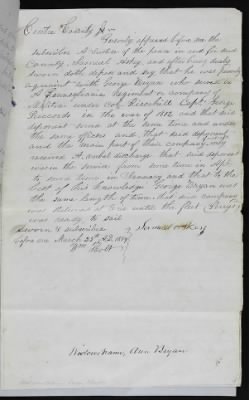 Centre County Ss
Personally appeared before me the
subscriber A Justice of the peace in and for said
County, Samuel Askey, and after being duly
sworn doth depose and say that he was personally
acquainted with George Bryan who served in
A Pennsylvania Regiment or company of
Militia under Col. Capt. George
Records in the war of 1812 and that said
deponent served at the same time and under
the same officers and that said deponent
and the main part of their company only
received A verbal discharge that said deponent
was in the service from some time in Sept.
to some time in January and that to the
best of his knowledge George Bryan was
the same length of time. And said company
was stationed at Erie until the fleet (Perry's
was ready to sail
Sworn & subscribed Samuel Askey
before me March 23d A.D. 1857
Wm Holt
Widows name, Ann Bryan